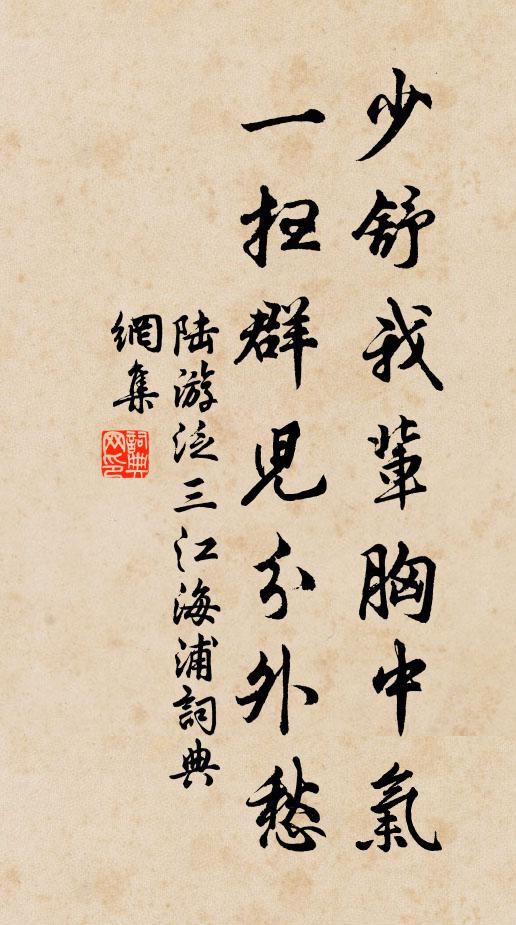 少舒我輩胸中氣
一扫群児分外愁
陆游泛三江海浦詞典
網集
詞典
网印